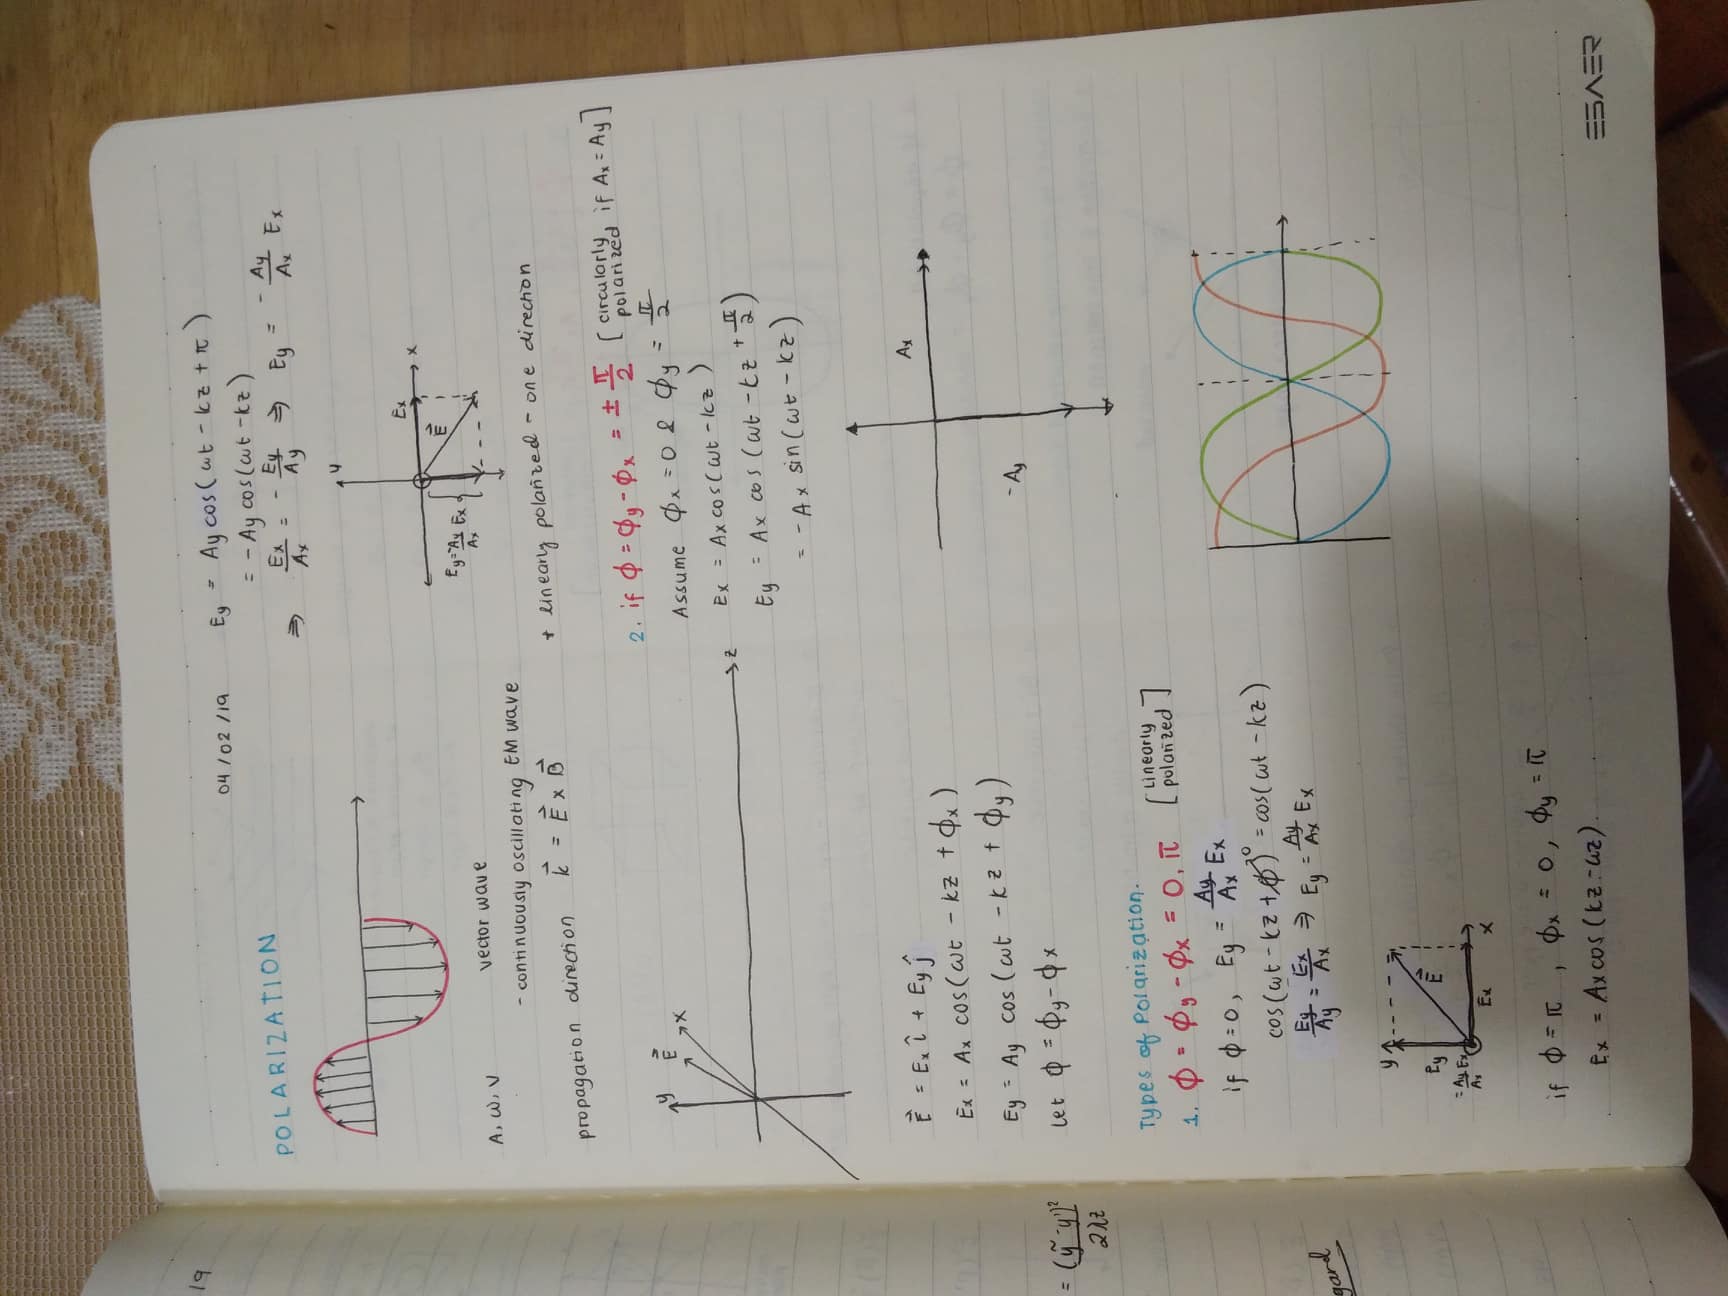 19
= (ỹ - y')²
2λz
gard
04/02/19
POLARIZATION
A, ω, v
vector wave
- continuously oscillating EM wave
propagation direction k⃗ = E⃗ x B⃗
y
E⃗
x
z
E⃗ = Ex î + Ey ĵ
Ex = Ax cos(ωt - kz + ϕx)
Ey = Ay cos(ωt - kz + ϕy)
Let ϕ = ϕy - ϕx
Types of Polarization.
1. ϕ = ϕy - ϕx = 0, π [Linearly polarized]
if ϕ = 0, Ey = Ay/Ax Ex
cos(ωt - kz + ϕ)⁰ = cos(ωt - kz)
Ey/Ay = Ex/Ax ⇒ Ey = Ay/Ax Ex
y
Ey = Ay/Ax Ex
E⃗
Ex
x
if ϕ = π, ϕx = 0, ϕy = π
Ex = Ax cos(kz - ωz).
Ey = Ay cos(ωt - kz + π)
= - Ay cos(ωt - kz)
⇒ Ex/Ax = - Ey/Ay ⇒ Ey = - Ay/Ax Ex
y
Ex
x
E⃗
Ey = -Ay/Ax Ex
+ linearly polarized - one direction
2. if ϕ = ϕy - ϕx = ± π/2 [circularly polarized if Ax = Ay]
Assume ϕx = 0 & ϕy = π/2
Ex = Ax cos(ωt - kz)
Ey = Ax cos(ωt - kz + π/2)
= - Ax sin(ωt - kz)
Ax
- Ay
ESAER